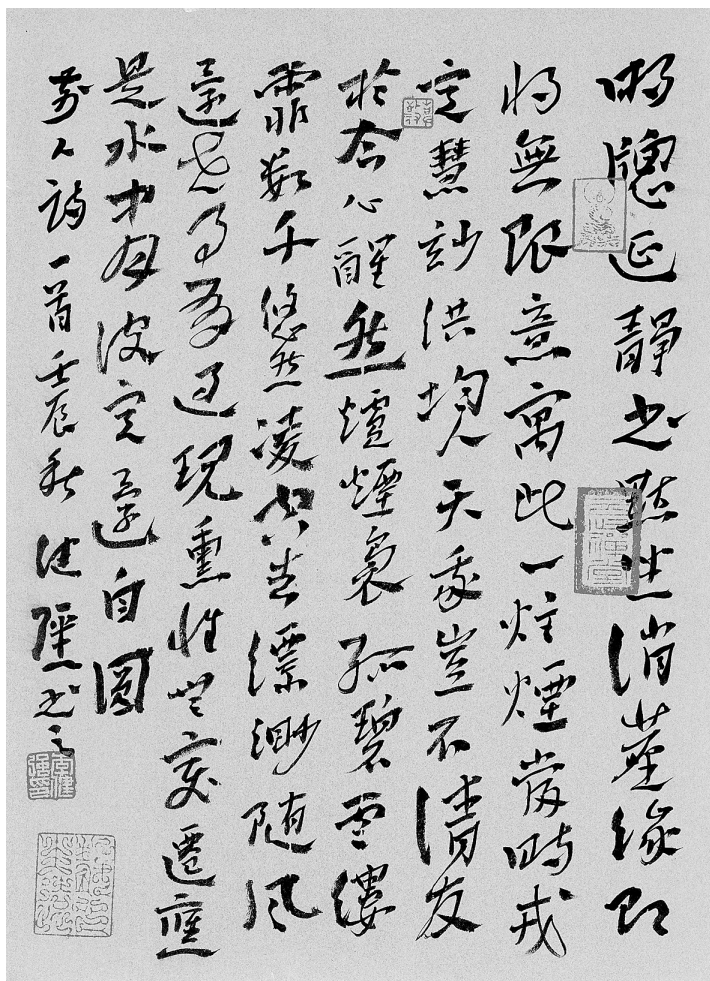 明牕延靜書默坐消塵緣即
將無限意寓此一炷煙當時戒
定慧玅供均人天我豈不清友
於今心醒然爐煙裊孤碧雲縷
霏數千悠然凌空去縹緲随風
還世事有過現熏性無變遷應
是水中月波定還自圓
前人詩一首壬辰秋健強書之